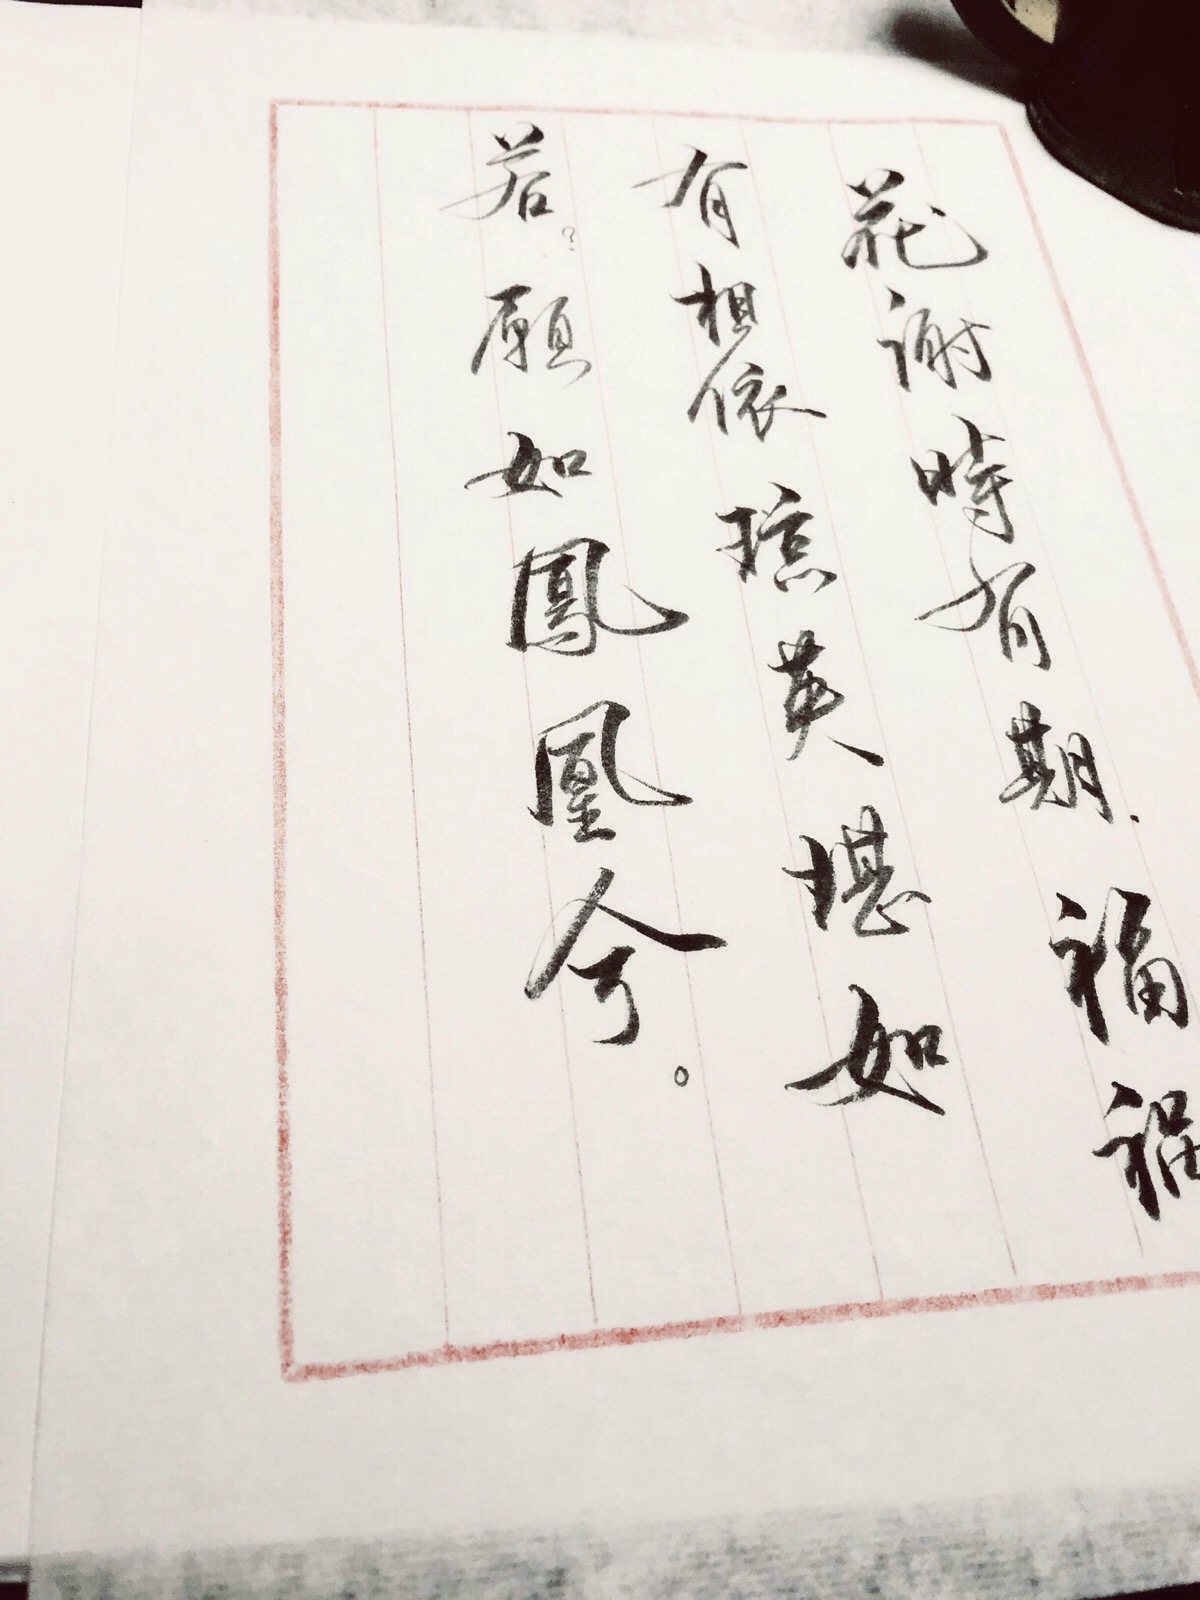 花謝時有期．福禍
有相依瓊英堪如
若？願如鳳凰兮。